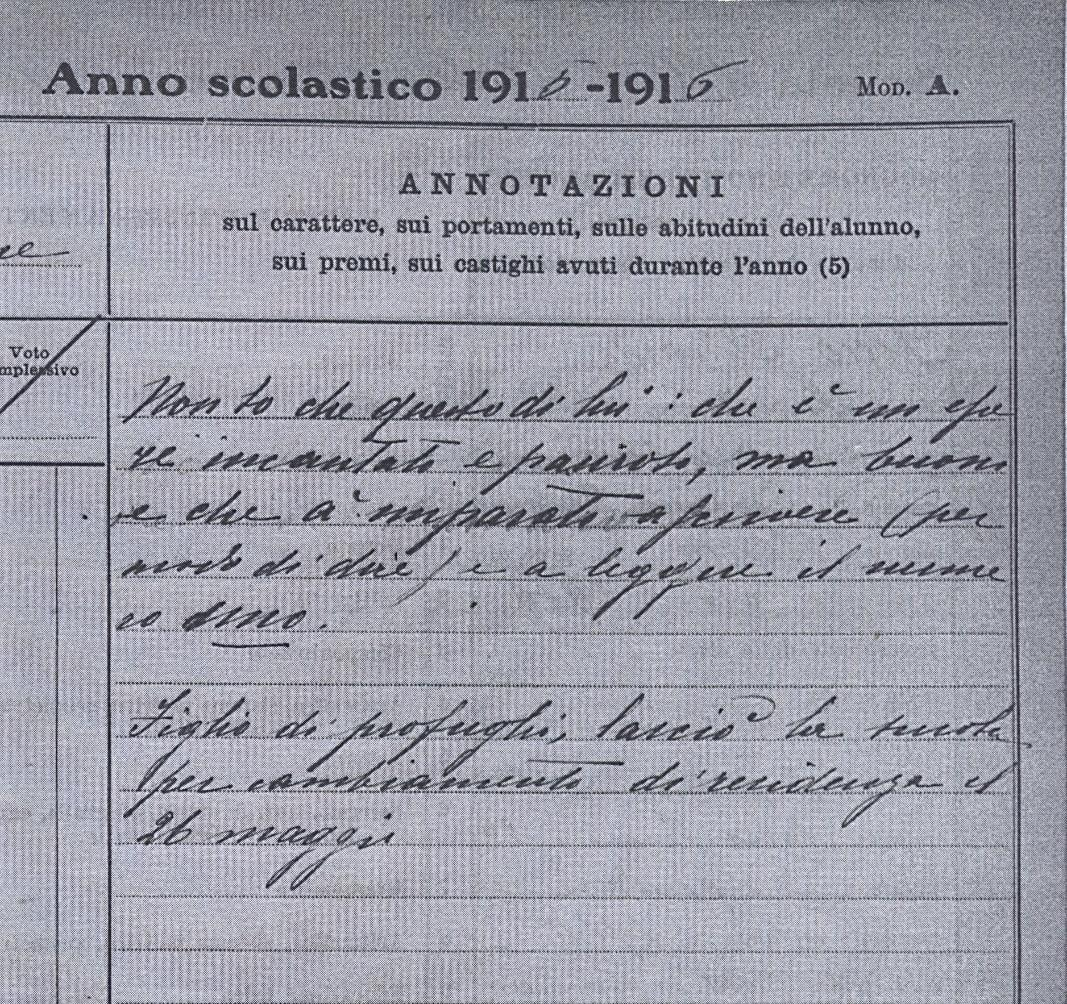 Anno scolastico 1915-1916 Mod. A.
ANNOTAZIONI
sul carattere, sui portamenti, sulle abitudini dell'alunno,
sui premi, sui castighi avuti durante l'anno (5)
Voto
mplessivo
Non so che questo di lui: che è un
incantato e pauroso, ma buono
e che à imparato a scrivere (per
modo di dire) e a leggere il nume
ro uno.
Figlio di profughi, lasciò la scuola
per cambiamento di residenza il
26 maggio